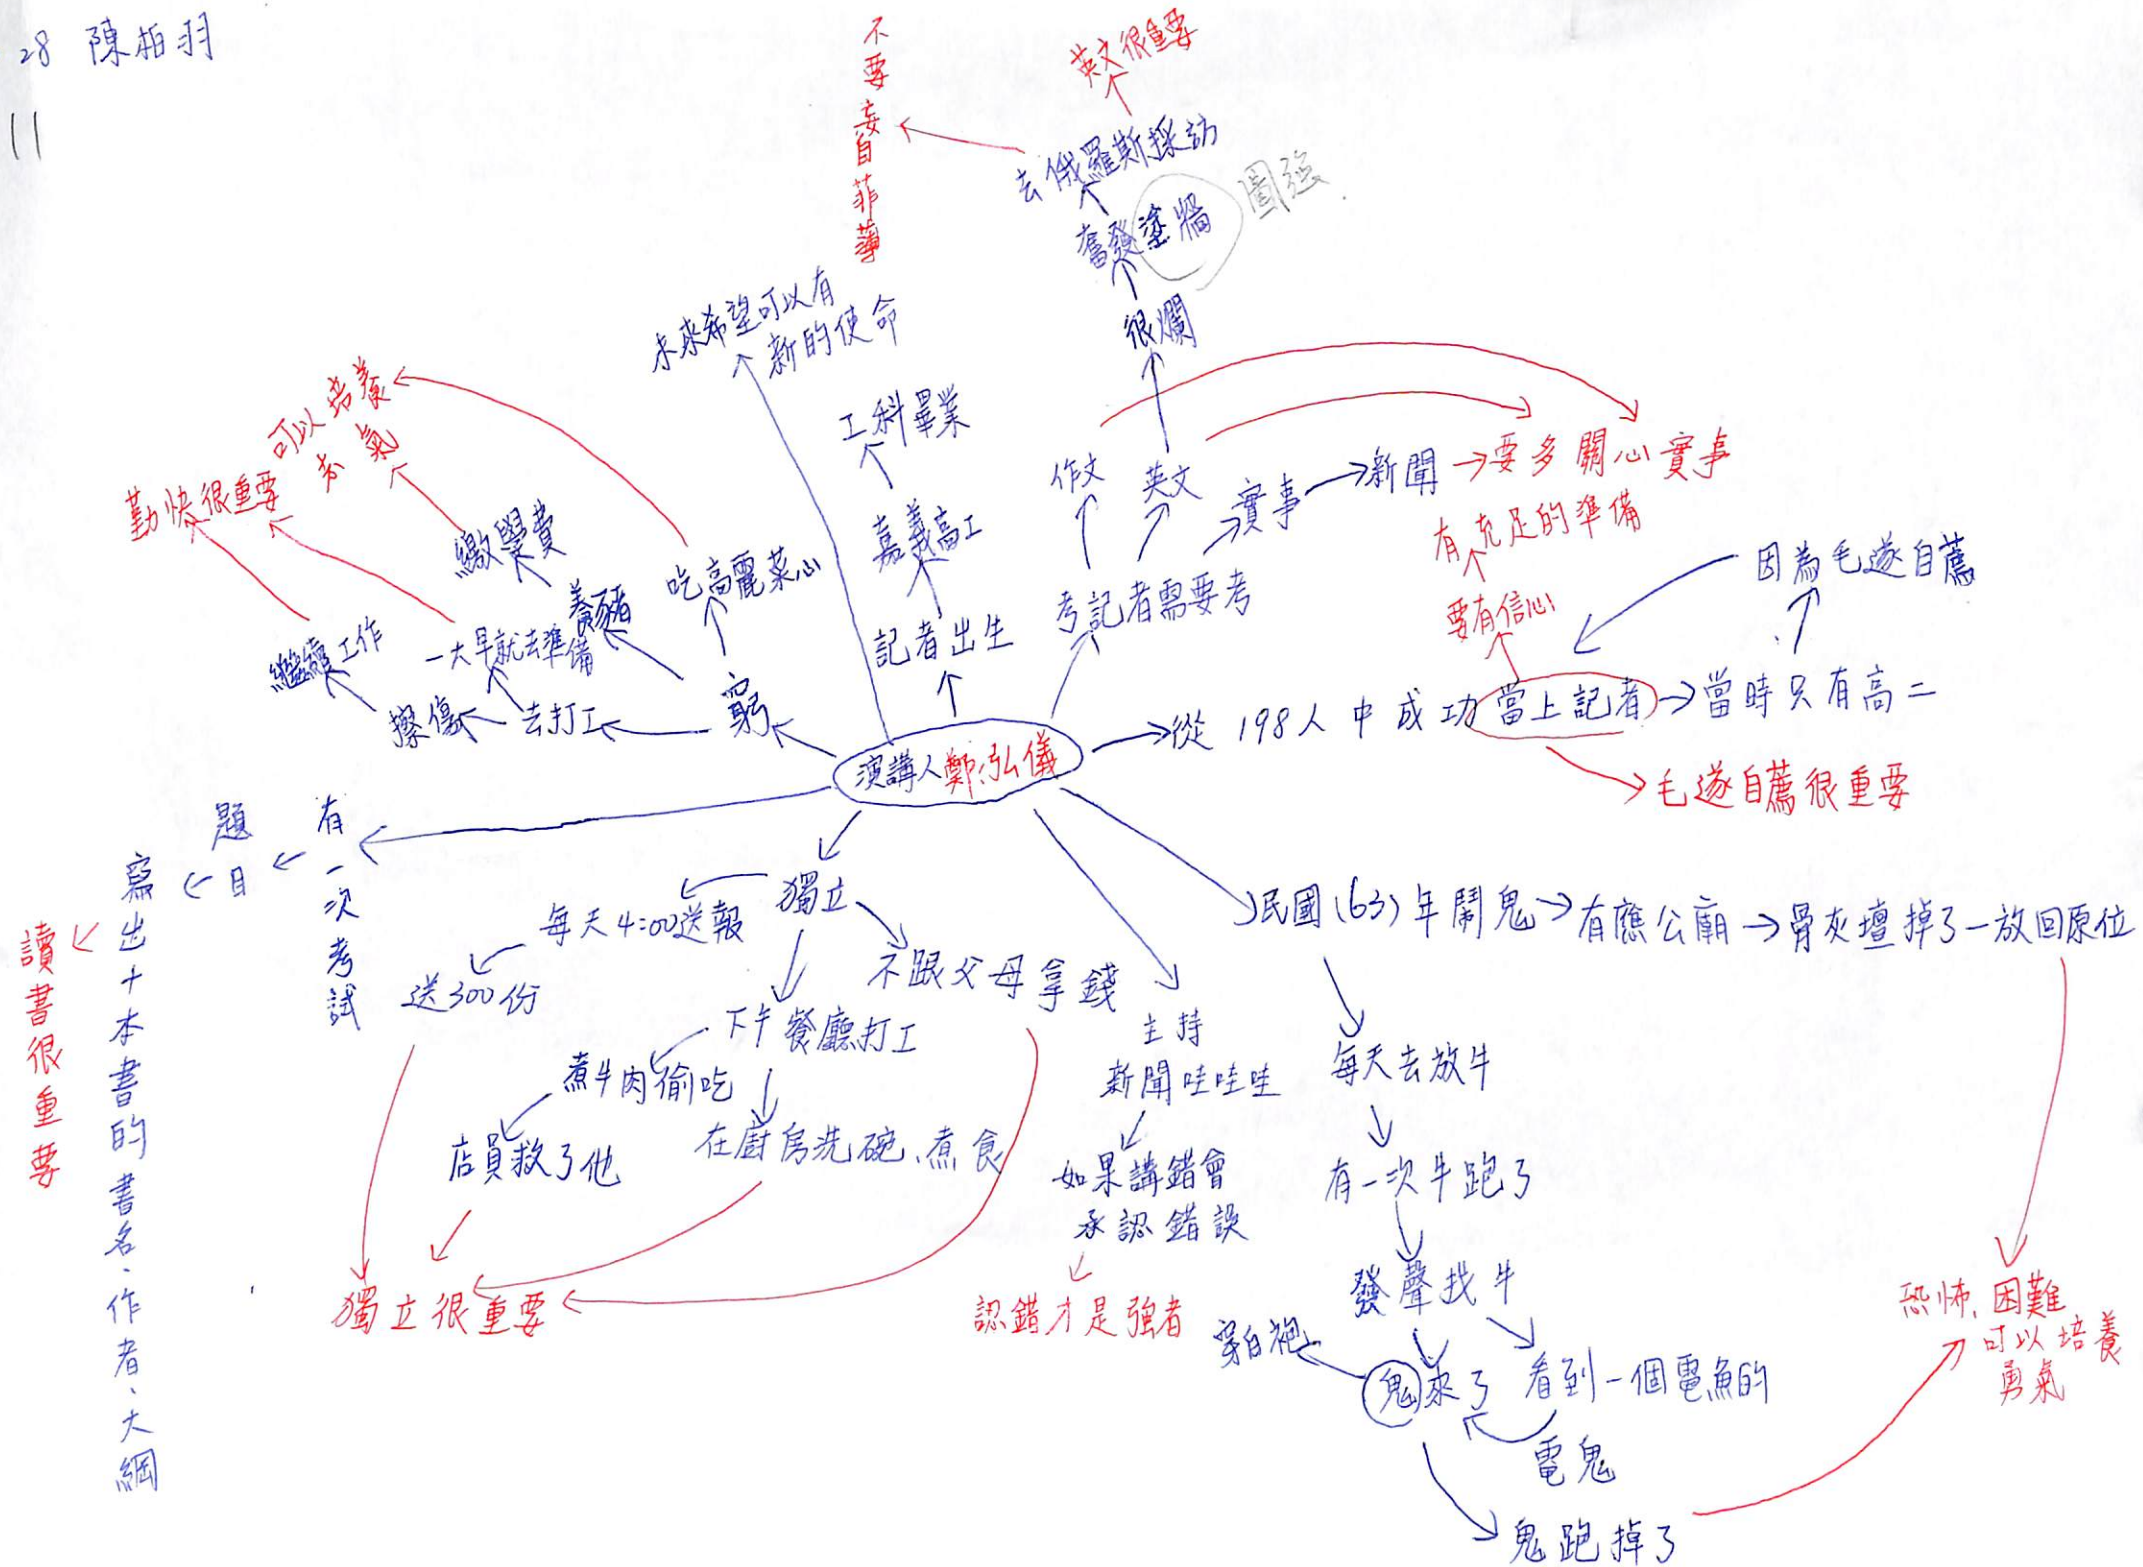 28 陳柏羽
11
不要妄自菲薄
英文很重要
去俄羅斯採訪
奮發塗牆
圖強
很爛
未來希望可以有
新的使命
工科畢業
嘉義高工
記者出生
作文
英文
實事
新聞
要多關心實事
考記者需要考
有充足的準備
要有信心
因為毛遂自薦
從198人中成功當上記者
當時只有高二
毛遂自薦很重要
可以培養
氣
勤快很重要
繳學費
養豬
吃高麗菜心
繼續工作
一大早就去準備
擦傷
去打工
窮
演講人鄭弘儀
有一次考試
題目
寫出十本書的書名、作者、大綱
讀書很重要
獨立
每天4:00送報
送300份
不跟父母拿錢
下午餐廳打工
煮牛肉偷吃
店員救了他
在廚房洗碗、煮食
獨立很重要
主持
新聞哇哇哇
如果講錯會
承認錯誤
認錯才是強者
民國(63)年鬧鬼
有應公廟
骨灰壇掉了一放回原位
每天去放牛
有一次牛跑了
發聲找牛
穿白袍
鬼來了
看到一個電魚的
電鬼
鬼跑掉了
恐怖、困難
可以培養
勇氣